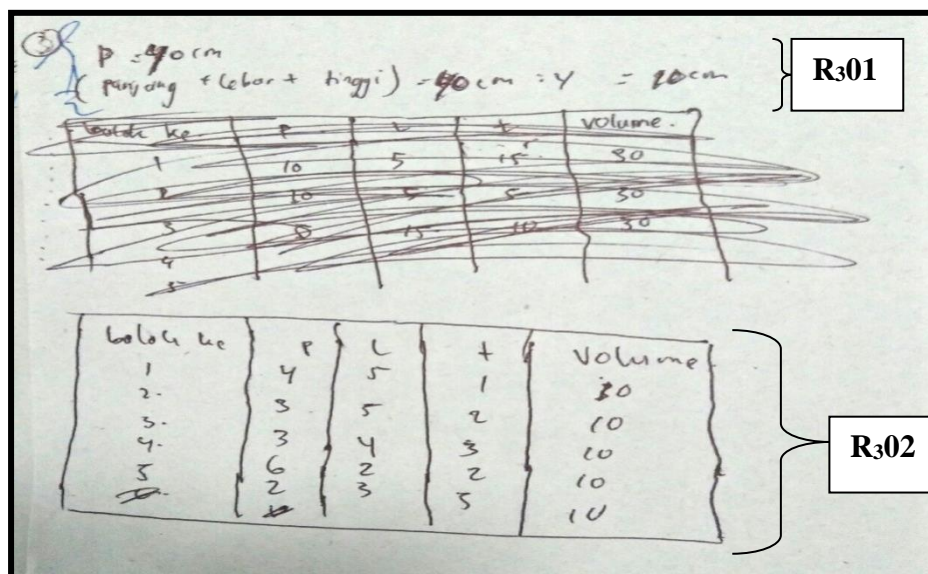 ③
P = 40 cm
(panjang + lebar + tinggi) = 40 cm : 4 = 10 cm
R301
balok ke. P L t Volume.
1 10 5 15 30
2 10 5 5 30
3 8 15 10 30
4
5
balok ke P L t Volume
1 4 5 1 10
2. 3 5 2 10
3. 3 4 3 10
4. 6 2 2 10
5 2 3 5 10
R302